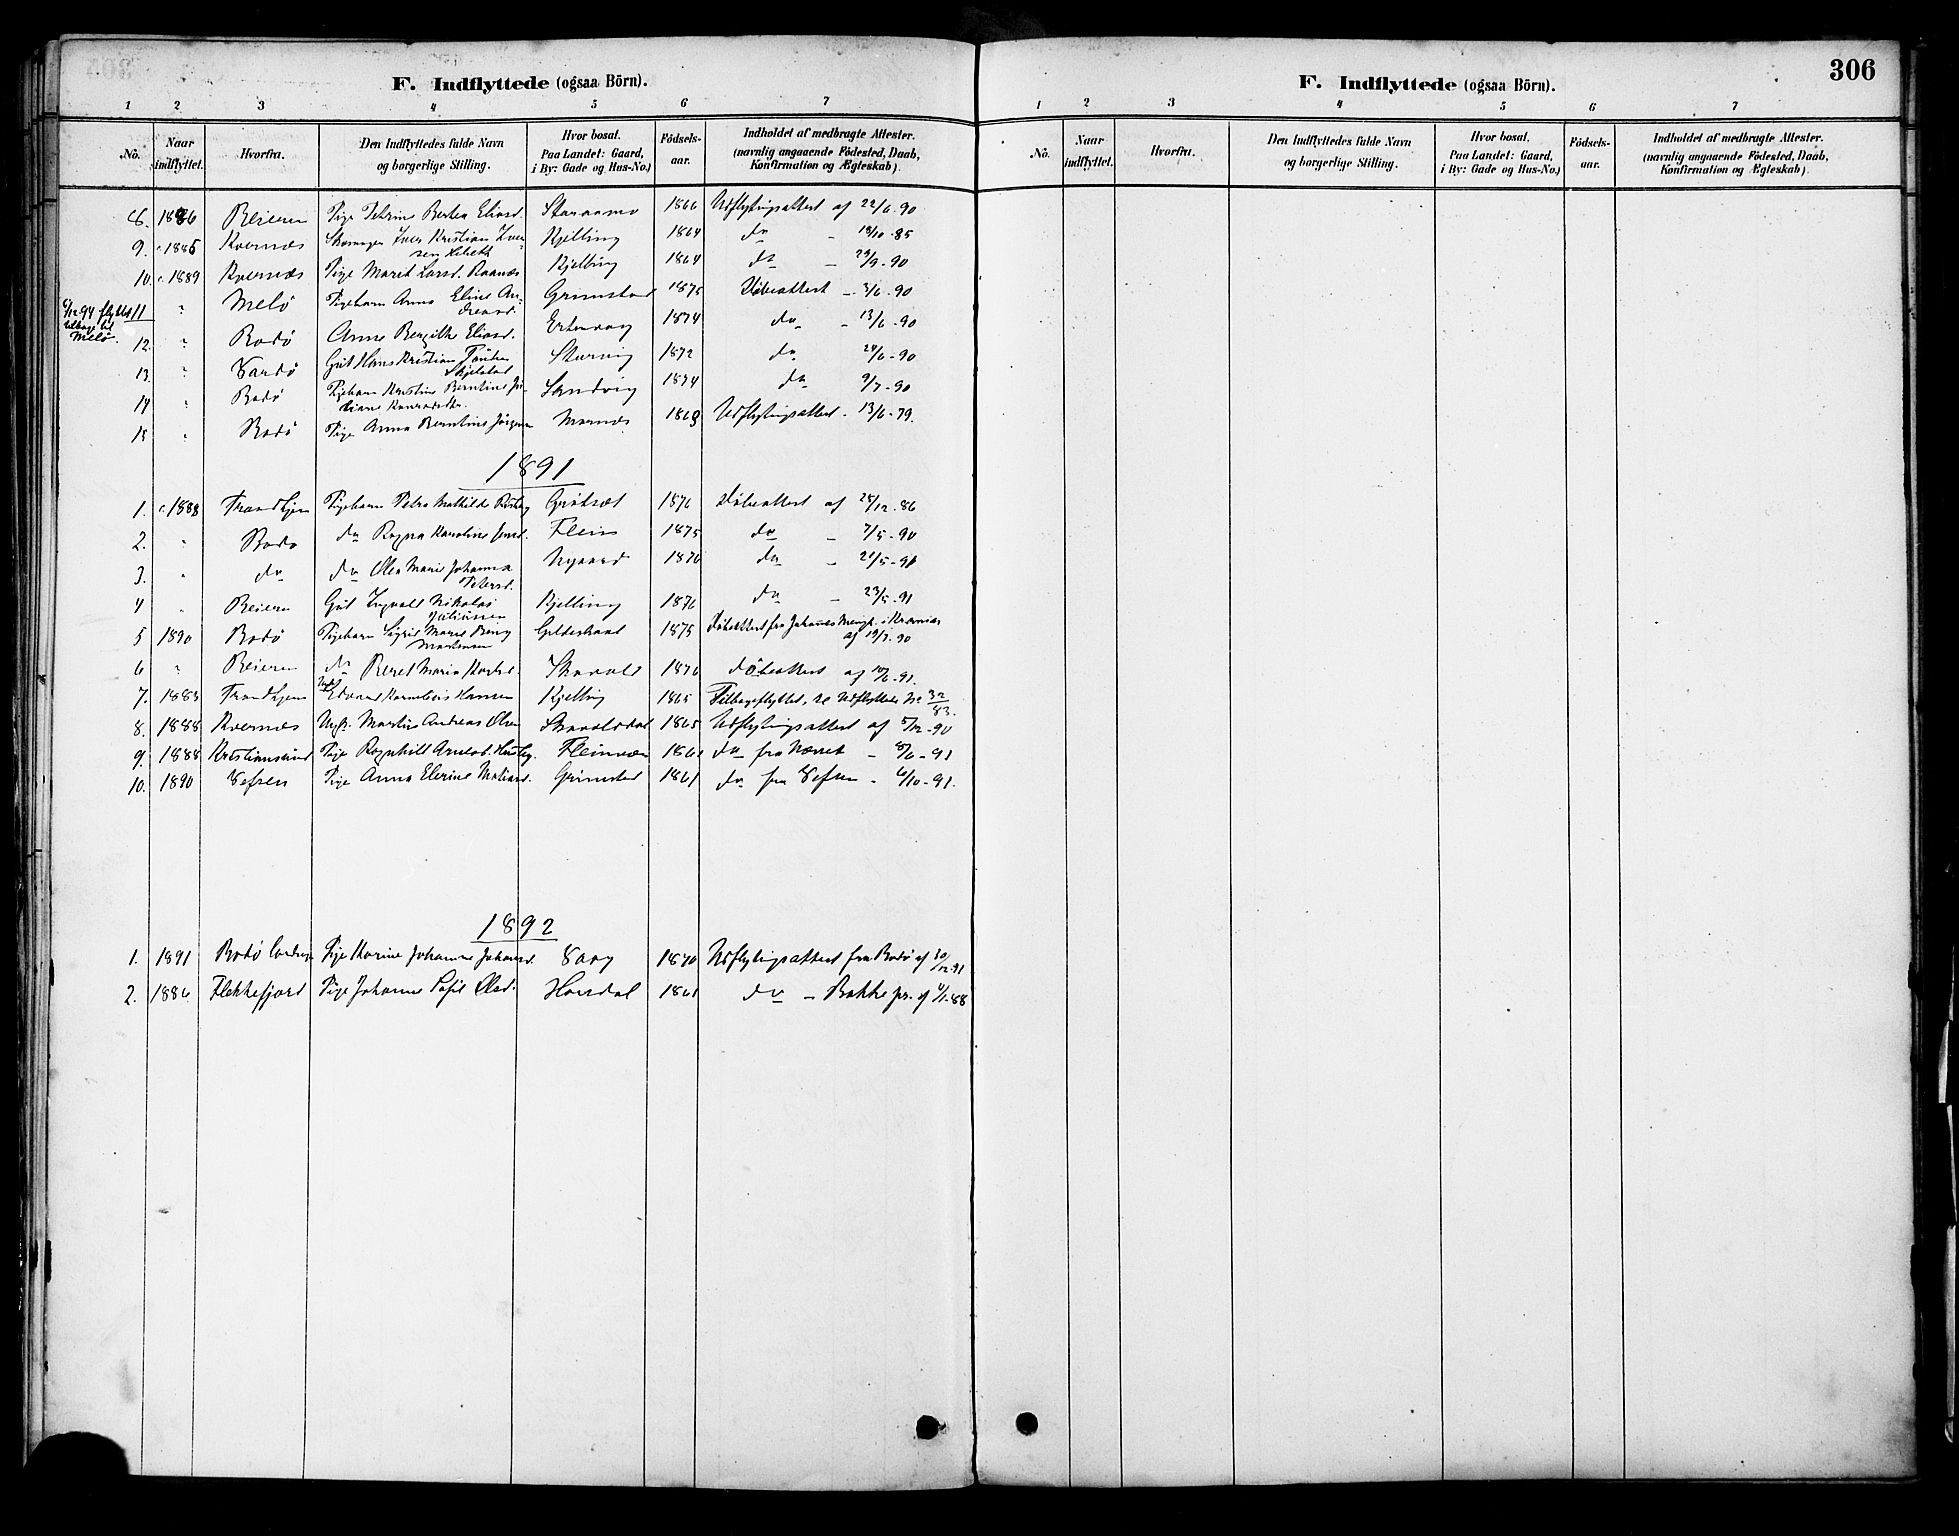 F. Indflyttede (ogsaa Börn).
1 2 3 4 5 6 7
No. Naar indflyttet. Hvorfra. Den Indflyttedes fulde Navn og borgerlige Stilling. Hvor bosat. Paa Landet: Gaard, i By: Gade og Hus-No.) Födsels-aar. Indholdet af medbragte Attester. (navnlig angaaende Födested, Daab, Konfirmation og Ægteskab).
8. 1886 Beieren Pige Petrine Bertea Eliasd. 1866 Udflytingsattest af 22/6-90
9. c. 1885 Kvernæs Iver Kristian Iversen Kjelling 1864 do - 18/10-85
10. c. 1889 Kvernæs Pige Marit Larsd. Kjelling 1864 do - 29/9-90
11 " Melö Pigebarn Anna Eline Andreasd. Grimstad 1875 Döbeattest - 3/6-90
flyttet tilbage til Melö.
12. " Bodö Anne Bergithe Eliasd. 1874 do - 13/6-90
13. " Vardö Gut Hans Kristian 1872 do 24/6-90
14 " Bodö Pigebarn Kristine Berntine Sandvig 1874 do 9/7-90
15 " Bodö Pige Anna Berntine Jörgensen Marnæs 1868 Udflytingsattest - 13/6-79.
1891
1. c. 1888 Trondhjem Pigebarn Petra Mathilde 1876 Döbeattest af 28/12-86
2. " Bodö do Ragna Karoline Jensd. Flein 1875 do - 7/5-90
3. " do do Olea Marie Johanna Petersd. Nygaard 1876 do - 21/5-91
4 " Beieren Gut Ingvald Nikolai Juliussen Kjelling 1876 do - 23/5-91
5 1890 Bodö Pigebarn Sigrid Marie Berg Mortensen Gildeskaal 1875 Döbeattest fra Johannes Menigh. i af 19/7-90
6 " Beieren do Beret Maria Skavold 1876 döbeattest af 10/6-91
7. 1883 Trondhjem Edvard Kornelius Hansen Kjelling 1865 Tilbageflyttet, se Udflyttede No. 32/83.
8. 1888 Kvernæs Ungk. Martin Andreas Olsen 1865 Udflytingsattest af 5/12-90
9. 1888 Kristiansund Pige Ragnhild Arnesd. Husby Fleinvær 1861 do fra - 8/6-91
10. 1890 Vefsen Pige Anna Elerine Grimstad 1861 do fra Vefsen - 6/10-91.
1892
1. 1891 Bodö Pige Karine Johanne Johansd. Vaag 1870 Udflytingsattest fra Bodö af 30/12-91
2. 1886 Flekkefjord Pige Johanne Sofie Olsd. 1861 do - Bakke pr. af 4/1-88
306
F. Indflyttede (ogsaa Börn).
1 2 3 4 5 6 7
No. Naar indflyttet. Hvorfra. Den Indflyttedes fulde Navn og borgerlige Stilling. Hvor bosat. Paa Landet: Gaard, i By: Gade og Hus-No.) Födsels-aar. Indholdet af medbragte Attester. (navnlig angaaende Födested, Daab, Konfirmation og Ægteskab).